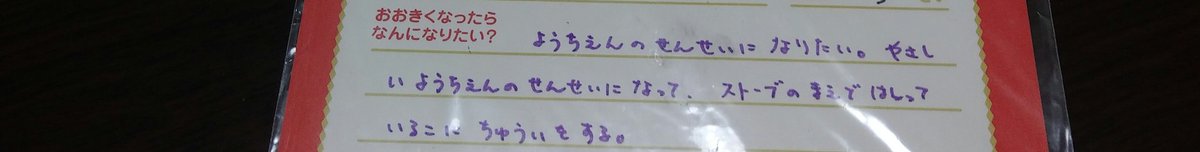 おおきくなったら
なんになりたい?
ようちえんのせんせいになりたい。やさし
いようちえんのせんせいになって、ストーブのまえではしって
いるこにちゅういをする。